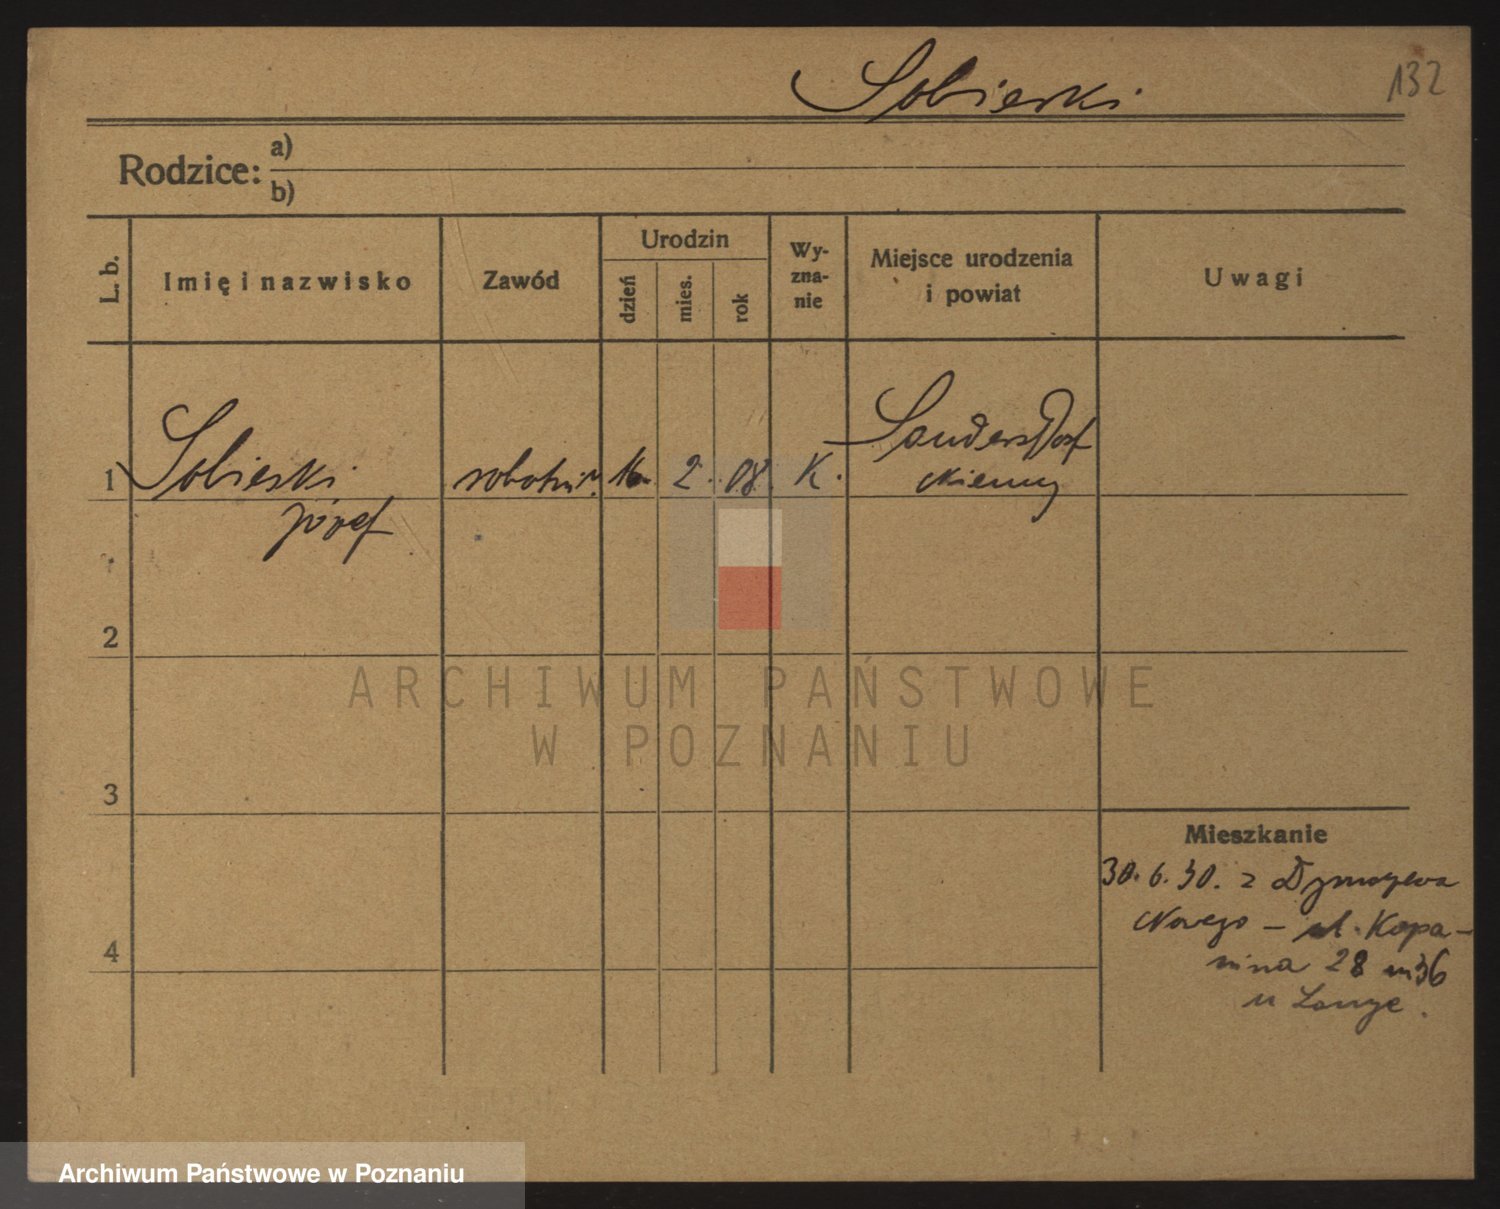 Sobieski
132
Rodzice: a)
b)
L. b.
Imię i nazwisko
Zawód
Urodzin
dzień
mies.
rok
Wy-
zna-
nie
Miejsce urodzenia
i powiat
Uwagi
1 Sobieski
Józef
robotnik
2. 08. K.
Sandersdorf
Niemcy
2
3
4
Mieszkanie
30.6.30. z
Nowego - ul. Kopa-
nina 28 m 36
u Lange.
ARCHIWUM PAŃSTWOWE
W POZNANIU
Archiwum Państwowe w Poznaniu